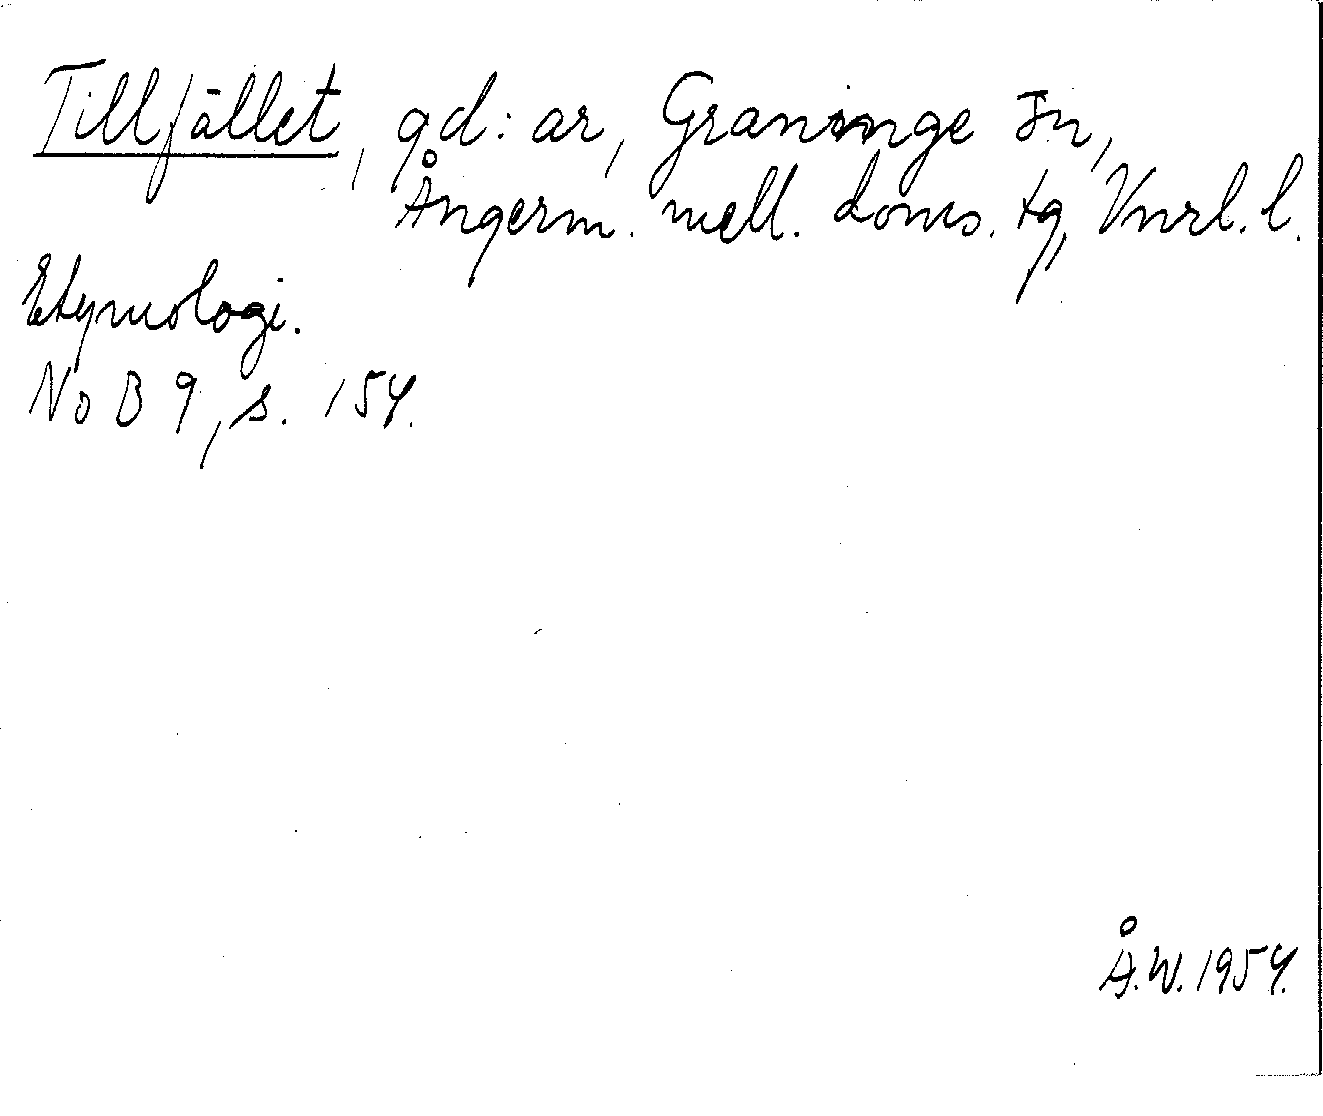 Tillfället, gd:ar, Graninge sn,
Ångerm. mell. doms. tg, Vnrl. l.
Etymologi.
NoB 9, s. 154.
Å.W. 1954.